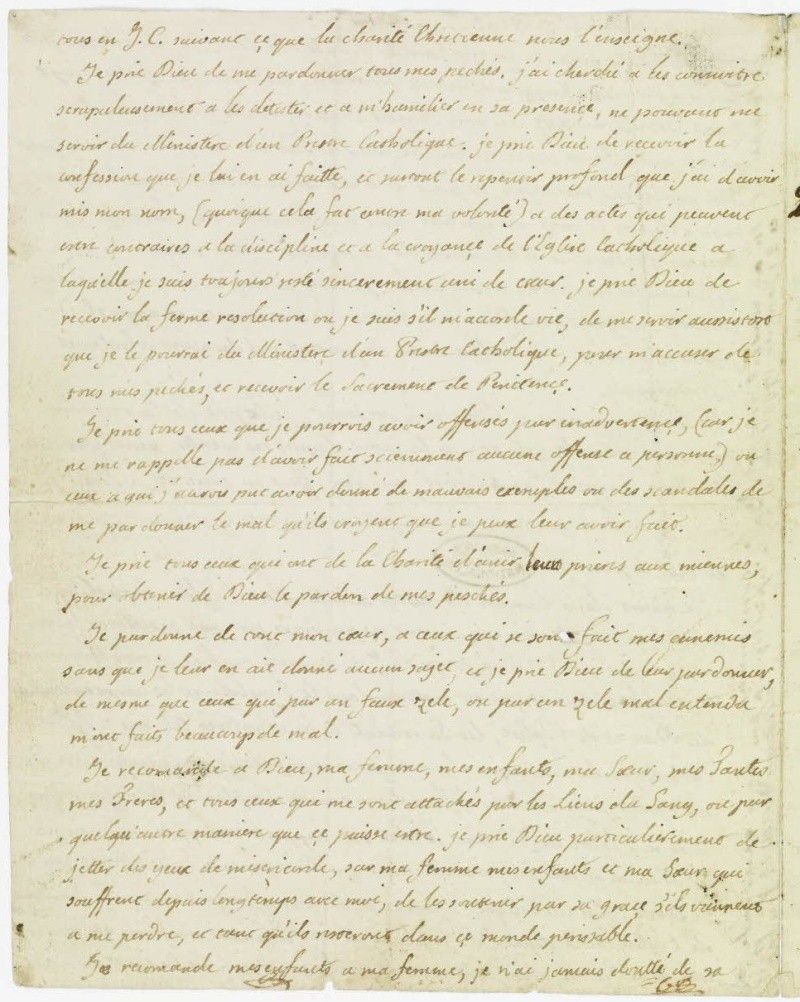 tous en J. C. suivant ce que la charité Chretienne nous l'enseigne.
Je prie Dieu de me pardonner tous mes pechés. j'ai cherché a les connoitre
scrupuleusement a les detester et a m'humilier en sa presence, ne pouvant me
servir du Ministere d'un Prestre Catholique. je prie Dieu de recevoir la
confession que je lui en ai faitte, et surtout le repentir profond que j'ai d'avoir
mis mon nom, (quoique cela fut contre ma volonté) a des actes qui peuvent
etre contraires a la discipline et a la croyance de l'Eglise Catholique a
laquelle je suis toujours resté sincerement uni de cœur. je prie Dieu de
recevoir la ferme resolution ou je suis s'il m'accorde vie, de me servir aussistost
que je le pourrai du Ministere d'un Prestre Catholique, pour m'accuser de
tous mes pechés, et recevoir le Sacrement de Penitence.
Je prie tous ceux que je pourrois avoir offensés par inadvertence, (car je
ne me rappelle pas d'avoir fait sciemment aucune offense a personne,) ou
ceux a qui j'aurois put avoir donné de mauvais exemples ou des scandales de
me pardonner le mal qu'ils croyent que je peux leur avoir fait.
Je prie tous ceux qui ont de la Charité d'unir leurs prieres aux miennes,
pour obtenir de Dieu le pardon de mes peschés.
Je pardonne de tout mon cœur, a ceux qui se son fait mes ennemis
sans que je leur en aie donné aucun sujet, et je prie Dieu de leur pardonner,
de mesme que ceux qui par un faux zele, ou par un zele mal entendu
m'ont faits beaucoups de mal.
Je recomande a Dieu, ma femme, mes enfants, ma Sœur, mes Tantes
mes Freres, et tous ceux qui me sont attachés par les Liens du Sang, ou par
quelqu'autre maniere que ce puisse estre. je prie Dieu particulierement de
jetter des yeux de misericorde, sur ma femme mes enfants et ma Sœur qui
souffrent depuis longtemps avec moi, de les soutenir par sa grace s'ils viennent
a me perdre, et tant qu'ils resteront dans ce monde perissable.
Je recomande mes enfants a ma femme, je n'ai jamais doutté de sa